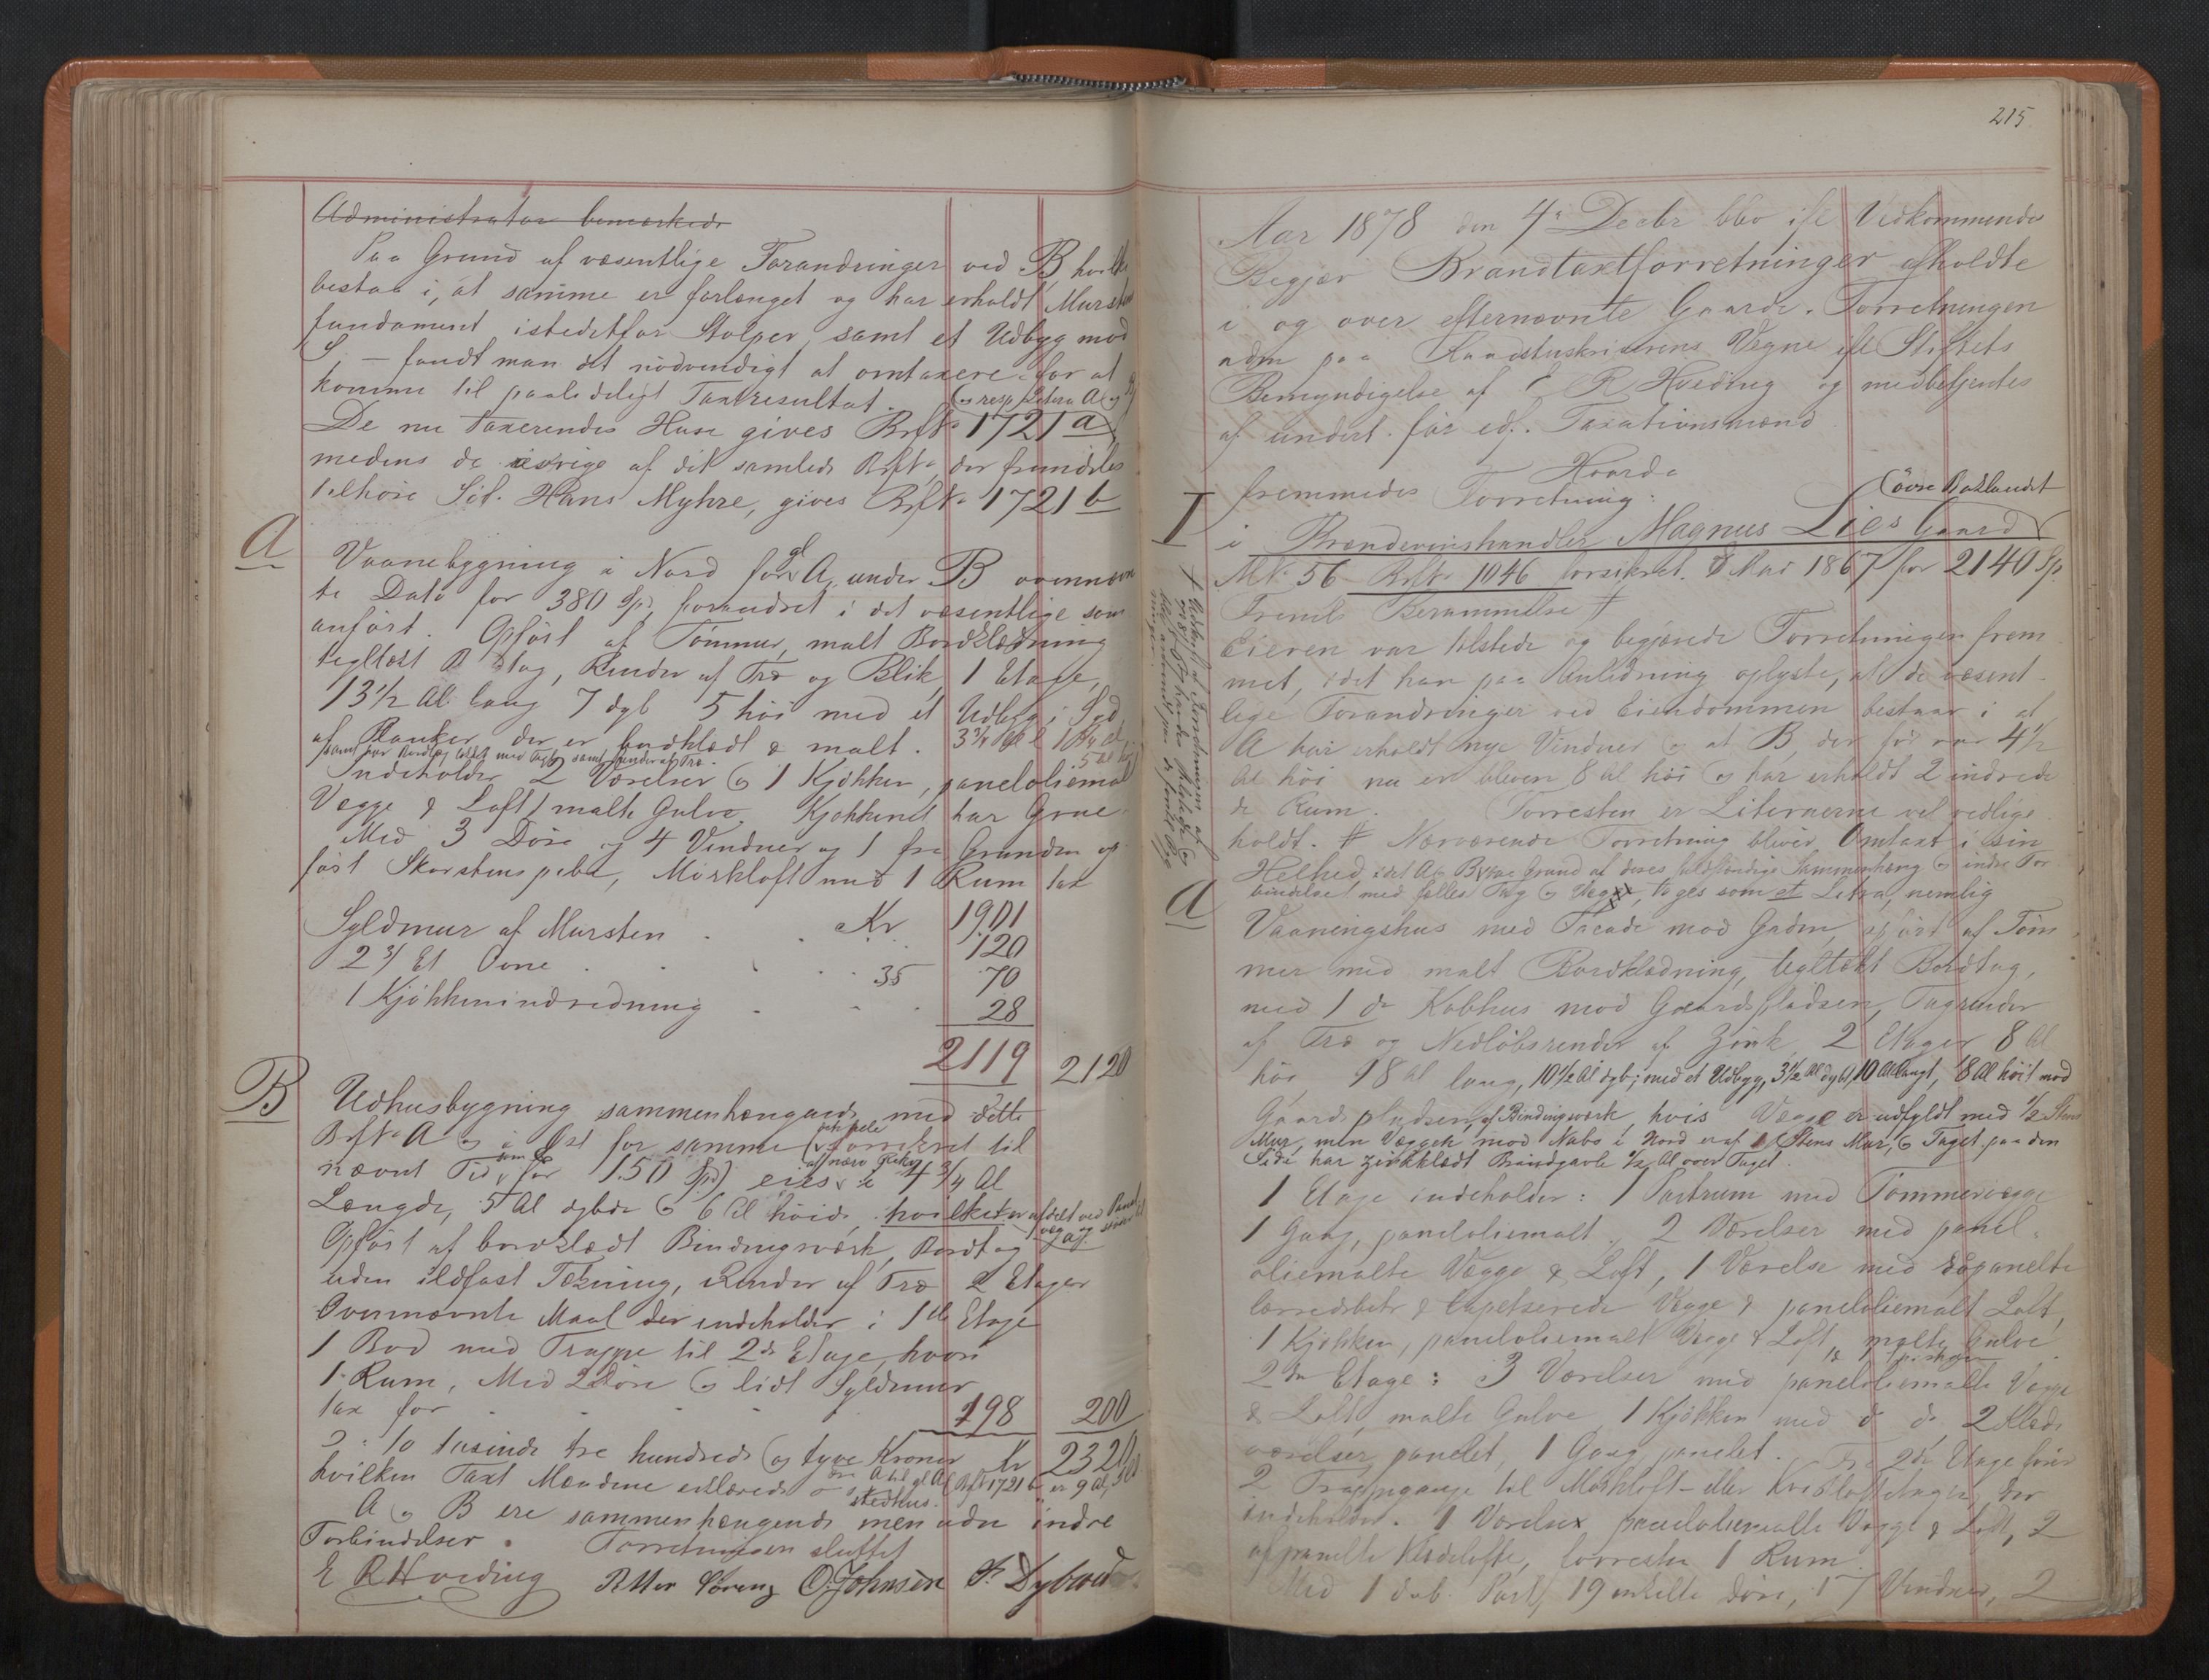 Administrator bemærkede
Paa Grund af væsentlige Forandringer ved B, hvilke
bestaa i, at samme er forlænget og har erholdt Mursten
fundament istedetfor Stolper, samt et Udbyg mod
S. — fandt man det nödvendigt at omtaxere for at
komme til paalideligt Taxtresultat. (og resp Litera A og B)
De nu taxerendes Huse gives Brft No 1721 a
medens de övrige af det samlede Brft No, der fremdeles
tilhöre Sit. Hans Myhre, gives Brft No 1721 b
A
Vaanebygning i Nord for gl A, under B ovennævn
te Dato for 380 Spd, forandret i det væsentlige som
anfört. Opfört af Tömmer, malt Bordklædning
tegltækt B dtag, Render af Træ og Blik, 1 Etage,
13 1/2 Al lang 7 dyb 5 höi med et Udbyg i Syd
af Planker der er bordklædt & malt. 3 3/4 Al l 1 3/4 d
samt har Bordtag tækket med Tagsten samt Render af Træ. 5 Al höi
Indeholder 2 Værelser og 1 Kjökken, paneloliemalt
Vægge & Loft, malte Gulve. Kjökkenet har Grue
Med 3 Döre og 4 Vinduer og 1 fra Grunden op
fört Skorstenspibe, Mörkloft med 1 Rum tax
Kr 1901
Syldmur af Mursten . . . 120
2 3/ Et Ovne . . . 35 70
1 Kjökkenindredning . . . 28
2119 2120
B
Udhusbygning sammenhængende med dette
Brft No A og i Öst for samme (forsikret til
nævnt Tid som C for 150 Spd) eies 4 3/4 Al
Længde, 5 Al dybde og 6 Al höide, hvilket er afdelt ved Panel
Opfört af bordklædt Bindingsværk, Bordtag
uden ildfast Tækning, Render af Træ 2 Etager
Ovennævnte Maal der indeholder i 1ste Etage
1 Bod med Trappe til 2de Etage, hvori
1 Rum, Med 2 Döre og lidt Syldmur
tax for . . . 198 200
To tusinde tre hundrede og tyve Kroner Kr 2320
hvilken Taxt Mændene erklærede
A og B ere sammenhængende men uden indre
Forbindelser. Forretningen sluttet
E R Hveding Petter Lorenz O. Johnsen F. Dybwad
215.
Aar 1878 den 4de Decbr blev ifl Vedkommendes
Begjær Brandtaxtforretninger afholdte
i og over efternævnte Gaarde. Forretningen
adm paa Raadstuskriverens Vegne efl Stiftets
Bemyndigelse af E R Hveding og medbetjentes
af undert. för edf. Taxationsmænd
Hvorda
fremmedes Forretning:
(övre Baklandet
I
i Brændevinshandler Magnus Lies Gaard
M No 56 Brft No 1046 forsikret 8 Mai 1867 for 2140 Sp
Freml Berammelse †
Eieren var tilstede og begjærede Forretningen frem
met, idet han paa Anledning oplyste, at de væsent
lige Forandringer ved Eiendommen bestaar i at
A har erholdt nye Vinduer og at B, der för var 4 1/2
Al höi nu er bleven 8 Al höi og har erholdt 2 indrede
de Rum. Forresten er Literaerne vel vedlige
holdt. # Nærværende Forretning bliver Omtaxt i sin
Helhed, idet A og B, paa Grund af deres fuldstændige Sammenhæng og indre For
bindelser med fælles Tag og Vægge, tages som et Litra, nemlig
A
Vaaningshus med Facade mod Gaden, opfört af Töm
mer med malt Bordklædning, tegltækt Bordtag,
med 1 do Kobhus mod Gaardspladsen, Tagrender
af Træ og Nedlöbsrender af Zink 2 Etager 8 Al
höi 18 Al lang, 10 1/2 Al dyb; med et Udbyg, 3 1/2 Al dybt, 10 Al langt, 8 Al höit mod
Gaardspladsen, af Bindingsværk, hvis Vægge er udfyldt med 1/2 Stens
Mur, men Væggen mod Nabo i Nord er af 1 Stens Mur, og Taget paa den
Side har zinkklædt Brandgavle 1/2 Al over Taget.
1 Etage indeholder: 1 Portrum med Tömmervægge
1 Gang, paneloliemalt. 2 Værelser med panel-
oliemalte Vægge & Loft, 1 Værelse med panelte
lærredsbetr & tapetserede Vægge & paneloliemalt Loft,
1 Kjökken, paneloliemalt Vægge & Loft, malte Gulve
2den Etage: 3 Værelser med paneloliemalte Vægge
& Loft, malte Gulve 1 Kjökken med do do, 2 Klæde
værelser panelet, 1 Gang panelet. Fra 2de Etage förer
2 Trappegange til Mörkloft- eller Kvistloftetagen, der
indeholder. 1 Værelse paneloliemalte Vægge & Loft, 2
afpanelte Klædelofte, forresten 1 Rum.
Med 1 dob. Port, 19 enkelte Döre, 17 Vinduer, 2